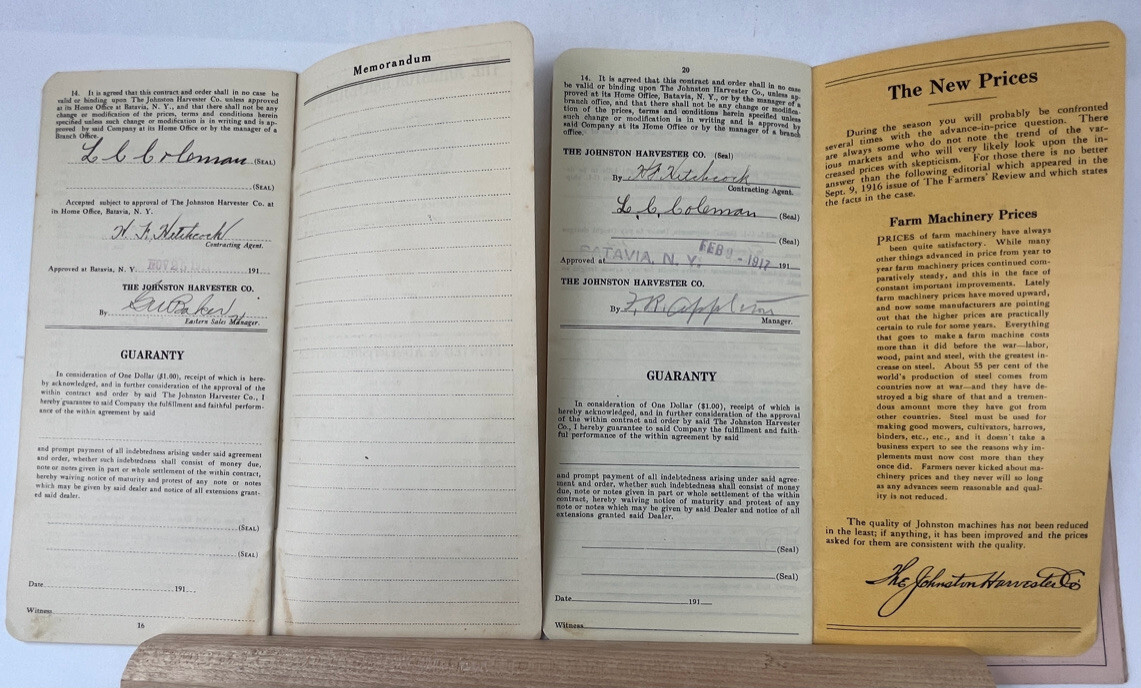 14. It is agreed that this contract and order shall in no case be
valid or binding upon The Johnston Harvester Co. unless approved
at its Home Office at Batavia, N. Y., and that there shall not be any
change or modification of the prices, terms and conditions herein
specified unless such change or modification is in writing and is ap-
proved by said Company at its Home Office or by the manager of a
Branch Office.
L C Coleman (SEAL)
(SEAL)
Accepted subject to approval of The Johnston Harvester Co. at
its Home Office, Batavia, N. Y.
H. F. Hitchcock
Contracting Agent.
Approved at Batavia, N. Y. NOV 191
THE JOHNSTON HARVESTER CO.
By Baker
Eastern Sales Manager.
GUARANTY
In consideration of One Dollar ($1.00), receipt of which is here-
by acknowledged, and in further consideration of the approval of the
within contract and order by said The Johnston Harvester Co., I
hereby guarantee to said Company the fulfillment and faithful perform-
ance of the within agreement by said
and prompt payment of all indebtedness arising under said agreement
and order, whether such indebtedness shall consist of money due,
note or notes given in part or whole settlement of the within contract,
hereby waiving notice of maturity and protest of any note or notes
which may be given by said dealer and notice of all extensions grant-
ed said dealer.
(SEAL)
(SEAL)
Date 191
Witness
16
Memorandum
20
14. It is agreed that this contract and order shall in no case
be valid or binding upon The Johnston Harvester Co., unless ap-
proved at its Home Office, Batavia, N. Y., or by the manager of a
branch office, and that there shall not be any change or modifica-
tion of the prices, terms and conditions herein specified unless
such change or modification is in writing and is approved by
said Company at its Home Office or by the manager of a branch
office.
THE JOHNSTON HARVESTER CO. (Seal)
By H F Hitchcock
Contracting Agent.
L. C. Coleman (Seal)
(Seal)
Approved at BATAVIA, N. Y. FEB 9 - 1917 191
THE JOHNSTON HARVESTER CO.
By F. R. Appleton
Manager.
GUARANTY
In consideration of One Dollar ($1.00), receipt of which is
hereby acknowledged, and in further consideration of the approval
of the within contract and order by said The Johnston Harvester
Co., I hereby guarantee to said Company the fulfillment and faith-
ful performance of the within agreement by said
and prompt payment of all indebtedness arising under said agree-
ment and order, whether such indebtedness shall consist of money
due, note or notes given in part or whole settlement of the within
contract, hereby waiving notice of maturity and protest of any
note or notes which may be given by said Dealer and notice of all
extensions granted said Dealer.
(Seal)
(Seal)
Date 191
Witness
The New Prices
During the season you will probably be confronted
several times with the advance-in-price question. There
are always some who do not note the trend of the var-
ious markets and who will very likely look upon the in-
creased prices with skepticism. For those there is no better
answer than the following editorial which appeared in the
Sept. 9, 1916 issue of The Farmers' Review and which states
the facts in the case.
Farm Machinery Prices
PRICES of farm machinery have always
been quite satisfactory. While many
other things advanced in price from year to
year farm machinery prices continued com-
paratively steady, and this in the face of
constant important improvements. Lately
farm machinery prices have moved upward,
and now some manufacturers are pointing
out that the higher prices are practically
certain to rule for some years. Everything
that goes to make a farm machine costs
more than it did before the war—labor,
wood, paint and steel, with the greatest in-
crease on steel. About 55 per cent of the
world's production of steel comes from
countries now at war—and they have de-
stroyed a big share of that and a tremen-
dous amount more they have got from
other countries. Steel must be used for
making good mowers, cultivators, harrows,
binders, etc., etc., and it doesn't take a
business expert to see the reasons why im-
plements must now cost more than they
once did. Farmers never kicked about ma-
chinery prices and they never will so long
as any advances seem reasonable and qual-
ity is not reduced.
The quality of Johnston machines has not been reduced
in the least; if anything, it has been improved and the prices
asked for them are consistent with the quality.
The Johnston Harvester Co.